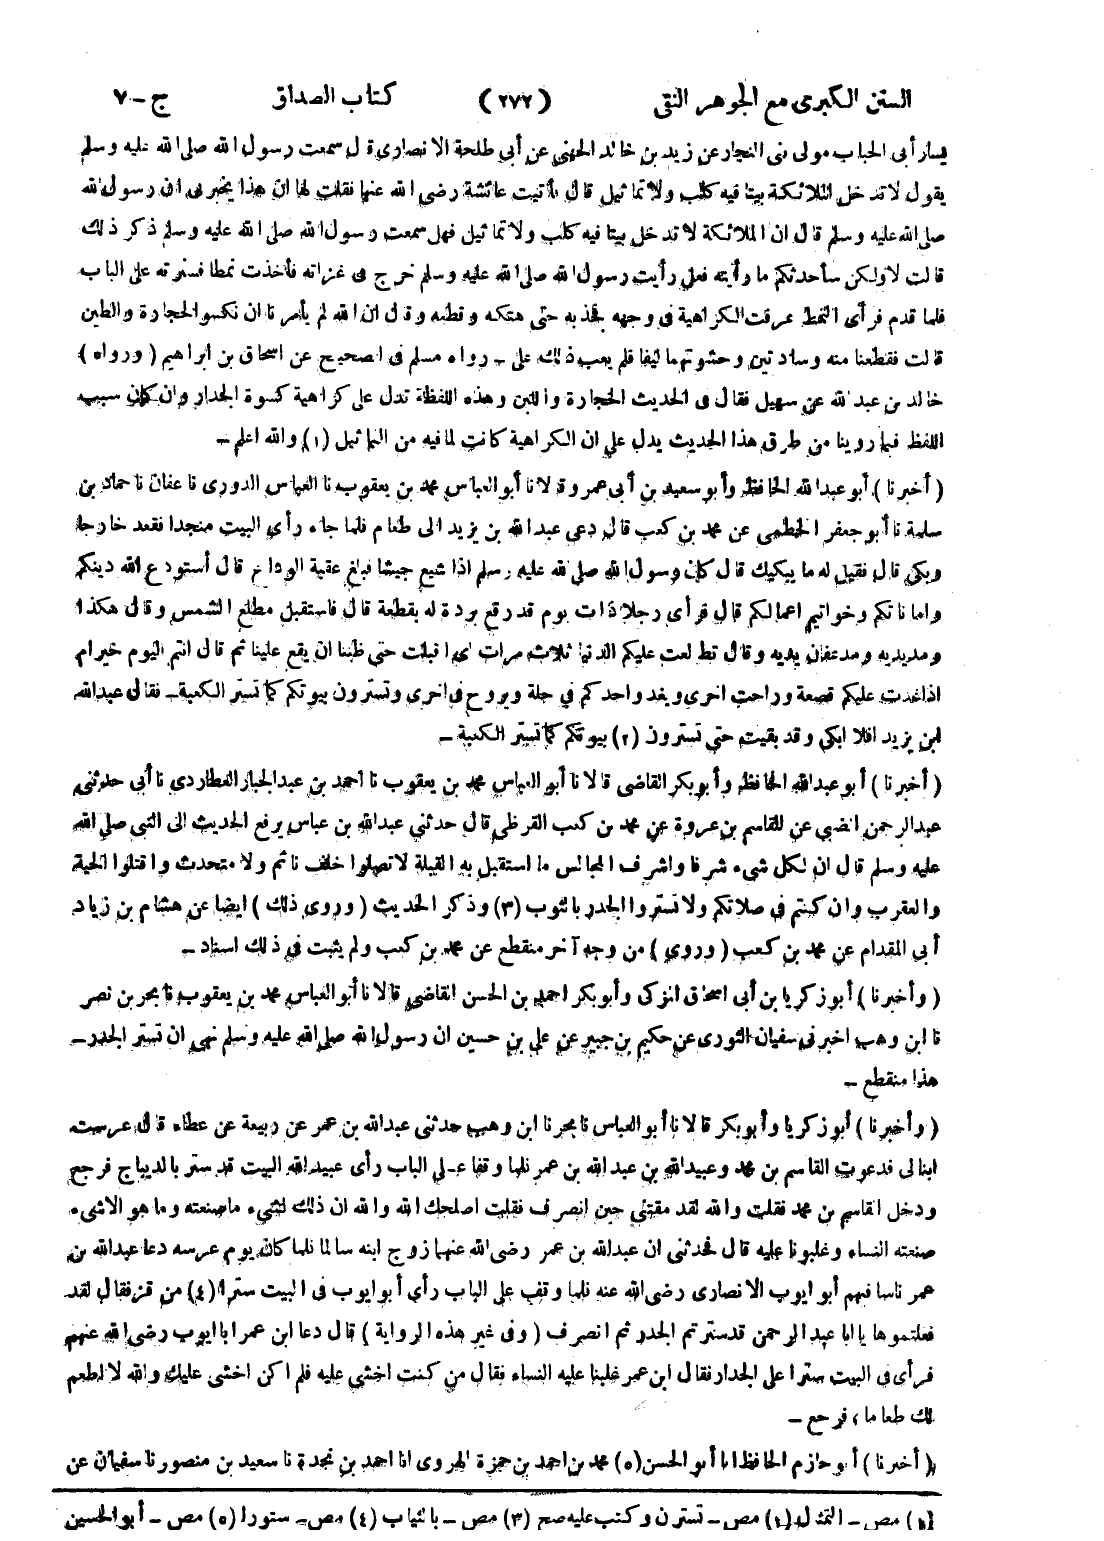 السنن الكبرى مع الجوهر النقى (٢٧٢) كتاب الصداق ج-٧
يسار أبى الحباب مولى بنى النجار عن زيد بن خالد الجهنى عن أبى طلحة الانصارى قال سمعت رسول الله صلى الله عليه وسلم
يقول لا تدخل الملائكة بيتا فيه كلب ولا تماثيل قال فأتيت عائشة رضى الله عنها فقلت لها ان هذا يخبرنى ان رسول الله
صلى الله عليه وسلم قال ان الملائكة لا تدخل بيتا فيه كلب ولا تماثيل فهل سمعت رسول الله صلى الله عليه وسلم ذكر ذلك
قالت لا ولكن سأحدثكم ما رأيته فعل رأيت رسول الله صلى الله عليه وسلم خرج فى غزاته فأخذت نمطا فسترته على الباب
فلما قدم فرأى النمط عرفت الكراهية فى وجهه فجذبه حتى هتكه وقطعه وقال ان الله لم يأمرنا ان نكسو الحجارة والطين
قالت فقطعنا منه وسادتين وحشوتهما ليفا فلم يعب ذلك على ـ رواه مسلم فى الصحيح عن اسحاق بن ابراهيم (ورواه)
خالد بن عبد الله عن سهيل فقال فى الحديث الحجارة واللبن وهذه اللفظة تدل على كراهية كسوة الجدار وان كان سبب
اللفظ فيما روينا من طرق هذا الحديث يدل على ان الكراهية كانت لما فيه من التماثيل (١) والله اعلم ـ
(أخبرنا) أبو عبد الله الحافظ وأبو سعيد بن أبى عمرو قالا نا أبو العباس محمد بن يعقوب نا العباس الدورى نا عفان نا حماد بن
سلمة نا أبو جعفر الخطمى عن محمد بن كعب قال دعى عبد الله بن يزيد الى طعام فلما جاء رأى البيت منجدا فقعد خارجا
وبكى قال فقيل له ما يبكيك قال كان رسول الله صلى الله عليه وسلم اذا شيع جيشا فبلغ عقبة الوداع قال أستودع الله دينكم
واماناتكم وخواتيم اعمالكم قال فرأى رجلا ذات يوم قد رقع بردة له بقطعة قال فاستقبل مطلع الشمس وقال هكذا
ومد يديه ومد عفان يديه وقال تطالعت عليكم الدنيا ثلاث مرات اى اقبلت حتى ظننا ان يقع علينا ثم قال انتم اليوم خير ام
اذا غدت عليكم قصعة وراحت اخرى ويغد واحدكم في حلة ويروح فى اخرى وتسترون بيوتكم كما تستر الكعبة ـ فقال عبد الله
ابن يزيد افلا ابكى وقد بقيت حتى تسترون (٢) بيوتكم كما تستر الكعبة ـ
(أخبرنا) أبو عبد الله الحافظ وأبو بكر القاضى قالا نا أبو العباس محمد بن يعقوب نا احمد بن عبد الجبار العطاردى نا أبى حدثنى
عبد الرحمن الضبي عن القاسم بن عروة عن محمد بن كعب القرظى قال حدثني عبد الله بن عباس يرفع الحديث الى النبى صلى الله
عليه وسلم قال ان لكل شىء شرفا واشرف المجالس ما استقبل به القبلة لا تصلوا خلف نائم ولا متحدث واقتلوا الحية
والعقرب وان كنتم فى صلاتكم ولا تستروا الجدر بالثوب (٣) وذكر الحديث (وروى ذلك) ايضا عن هشام بن زياد
أبى المقدام عن محمد بن كعب (وروى) من وجه آخر منقطع عن محمد بن كعب ولم يثبت فى ذلك اسناد ـ
(وأخبرنا) أبو زكريا بن أبى اسحاق المزكى وأبو بكر احمد بن الحسن القاضي قالا نا أبو العباس محمد بن يعقوب نا بحر بن نصر
نا ابن وهب اخبرنى سفيان الثورى عن حكيم بن جبير عن على بن حسين ان رسول الله صلى الله عليه وسلم نهى ان تستر الجدر ـ
هذا منقطع ـ
(وأخبرنا) أبو زكريا وأبو بكر قالا نا أبو العباس نا بحر نا ابن وهب حدثنى عبد الله بن عمر عن ربيعة عن عطاء قال عرست
ابنا لى فدعوت القاسم بن محمد وعبيد الله بن عبد الله بن عمر فلما وقفا على الباب رأى عبيد الله البيت قد ستر بالديباج فرجع
ودخل القاسم بن محمد فقلت والله لقد مقتني حين انصرف فقلت اصلحك الله والله ان ذلك لشىء ما صنعته وما هو الا شىء
صنعته النساء وغلبونا عليه قال فحدثنى ان عبد الله بن عمر رضى الله عنهما زوج ابنه سالما فلما كان يوم عرسه دعا عبد الله بن
عمر ناسا فيهم أبو ايوب الانصارى رضى الله عنه فلما وقف على الباب رأى أبو ايوب فى البيت سترا (٤) من قز فقال لقد
فعلتموها يا ابا عبد الرحمن قد سترتم الجدر ثم انصرف (وفى غير هذه الرواية) قال دعا ابن عمر ابا ايوب رضى الله عنهم
فرأى فى البيت سترا على الجدار فقال ابن عمر غلبنا عليه النساء فقال من كنت اخشى عليه فلم اكن اخشى عليك والله لا اطعم
لك طعاما، فرجع ـ
(أخبرنا) أبو حازم الحافظ انا أبو الحسن (٥) محمد بن احمد بن حمزة الهروى انا احمد بن نجدة نا سعيد بن منصور نا سفيان عن
(١) مص ـ التمثال (٢) مص ـ تسترن وكتب عليه صح (٣) مص ـ بالثياب (٤) مص ـ ستورا (٥) مص ـ أبو الحسين